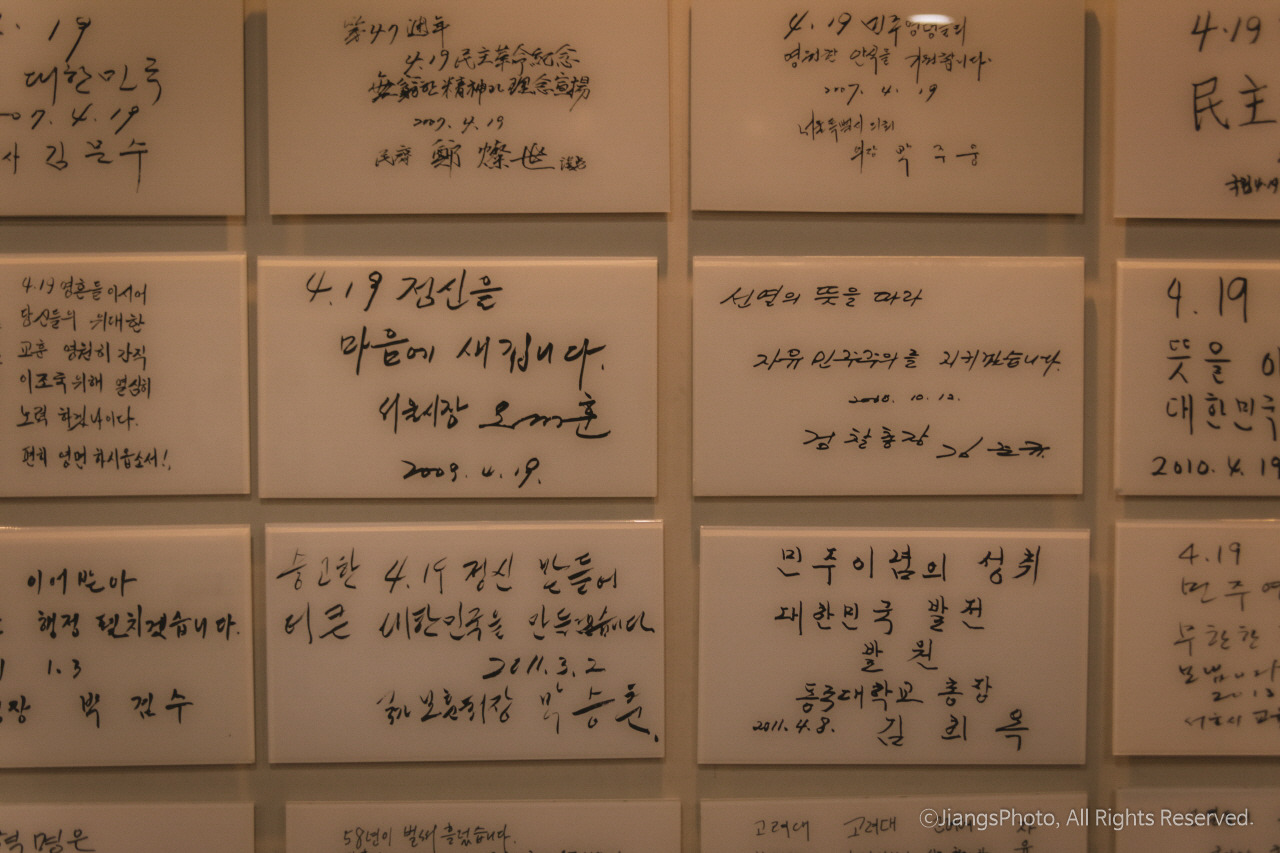 19
대한민국
07. 4. 19
사 김문수
第47週年
4.19 民主革命紀念
無窮한 精神과 理念宣揚
2007. 4. 19
鄭 燦 世
4. 19 민주영령들의
영원한 안식을 기원합니다.
2007. 4. 19
서울특별시 의회
의장 박 주 웅
4.19
民主
4.19 영혼들이시어
당신들의 위대한
교훈 영원히 간직
이조국위해 열심히
노력 하겠나이다.
편히 영면 하시옵소서!
4.19 정신을
마음에 새깁니다.
서울시장 오세훈
2009. 4. 19.
선열의 뜻을 따라
자유민주주의를 지키겠습니다.
2010. 10. 12.
검찰총장 김준규
4.19
뜻을 이
대한민국
2010. 4. 19
이어받아
행정 펼치겠습니다.
1. 3
장 박 겸 수
숭고한 4.19 정신 받들어
더 큰 대한민국을 만들겠습니다
2011. 3. 2
보훈처장 박승춘.
민주이념의 성취
대한민국 발전
발원
동국대학교 총장
2011. 4. 8. 김 희 옥
4.19
민주
무한한
2013
혁명은
58년이 벌써 흘렀습니다.
고려대 고려대
©JiangsPhoto, All Rights Reserved.